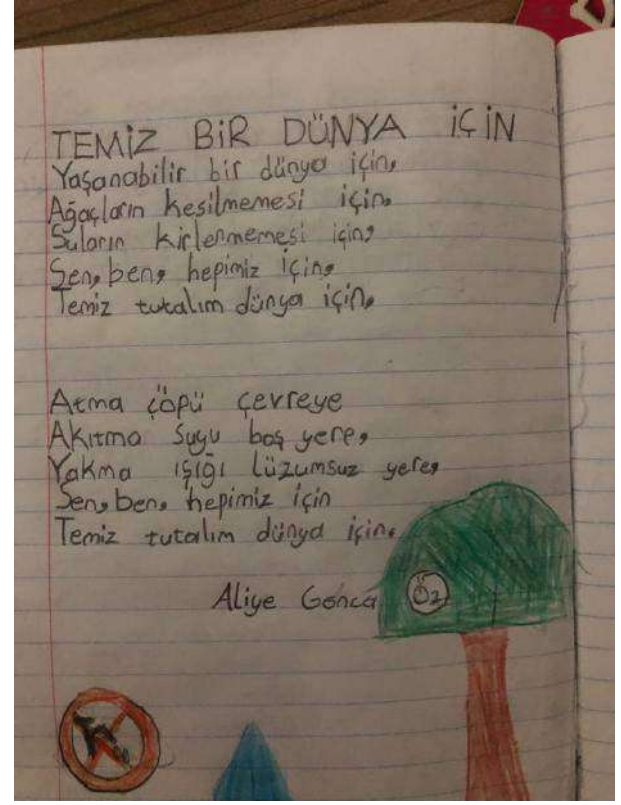 TEMİZ BİR DÜNYA İÇİN
Yaşanabilir bir dünya için,
Ağaçların kesilmemesi için,
Suların kirlenmemesi için,
Sen, ben, hepimiz için,
Temiz tutalım dünya için,
Atma çöpü çevreye
Akıtma suyu boş yere,
Yakma ışığı lüzumsuz yere,
Sen, ben, hepimiz için
Temiz tutalım dünya için,
Aliye Gonca Öz